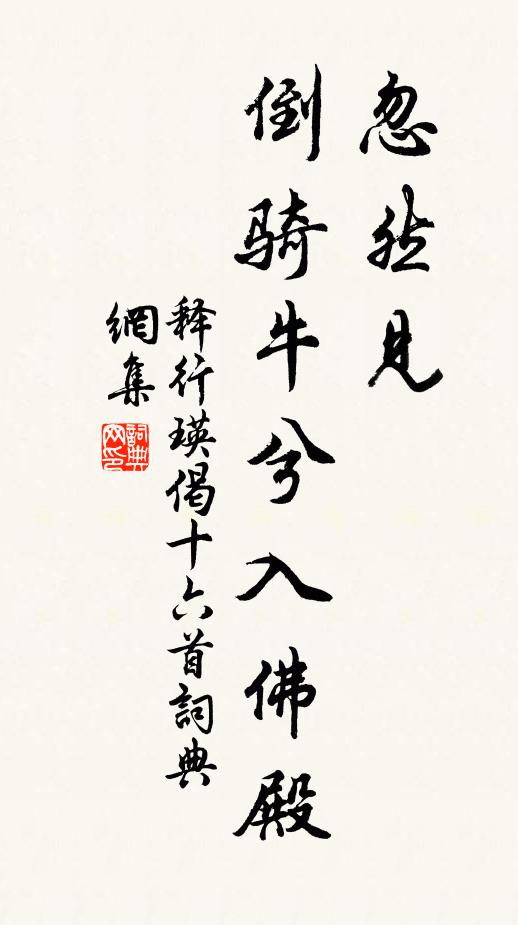 忽然見
倒騎牛兮入佛殿
释行瑛偈十六首詞典
網集
詞典
网印